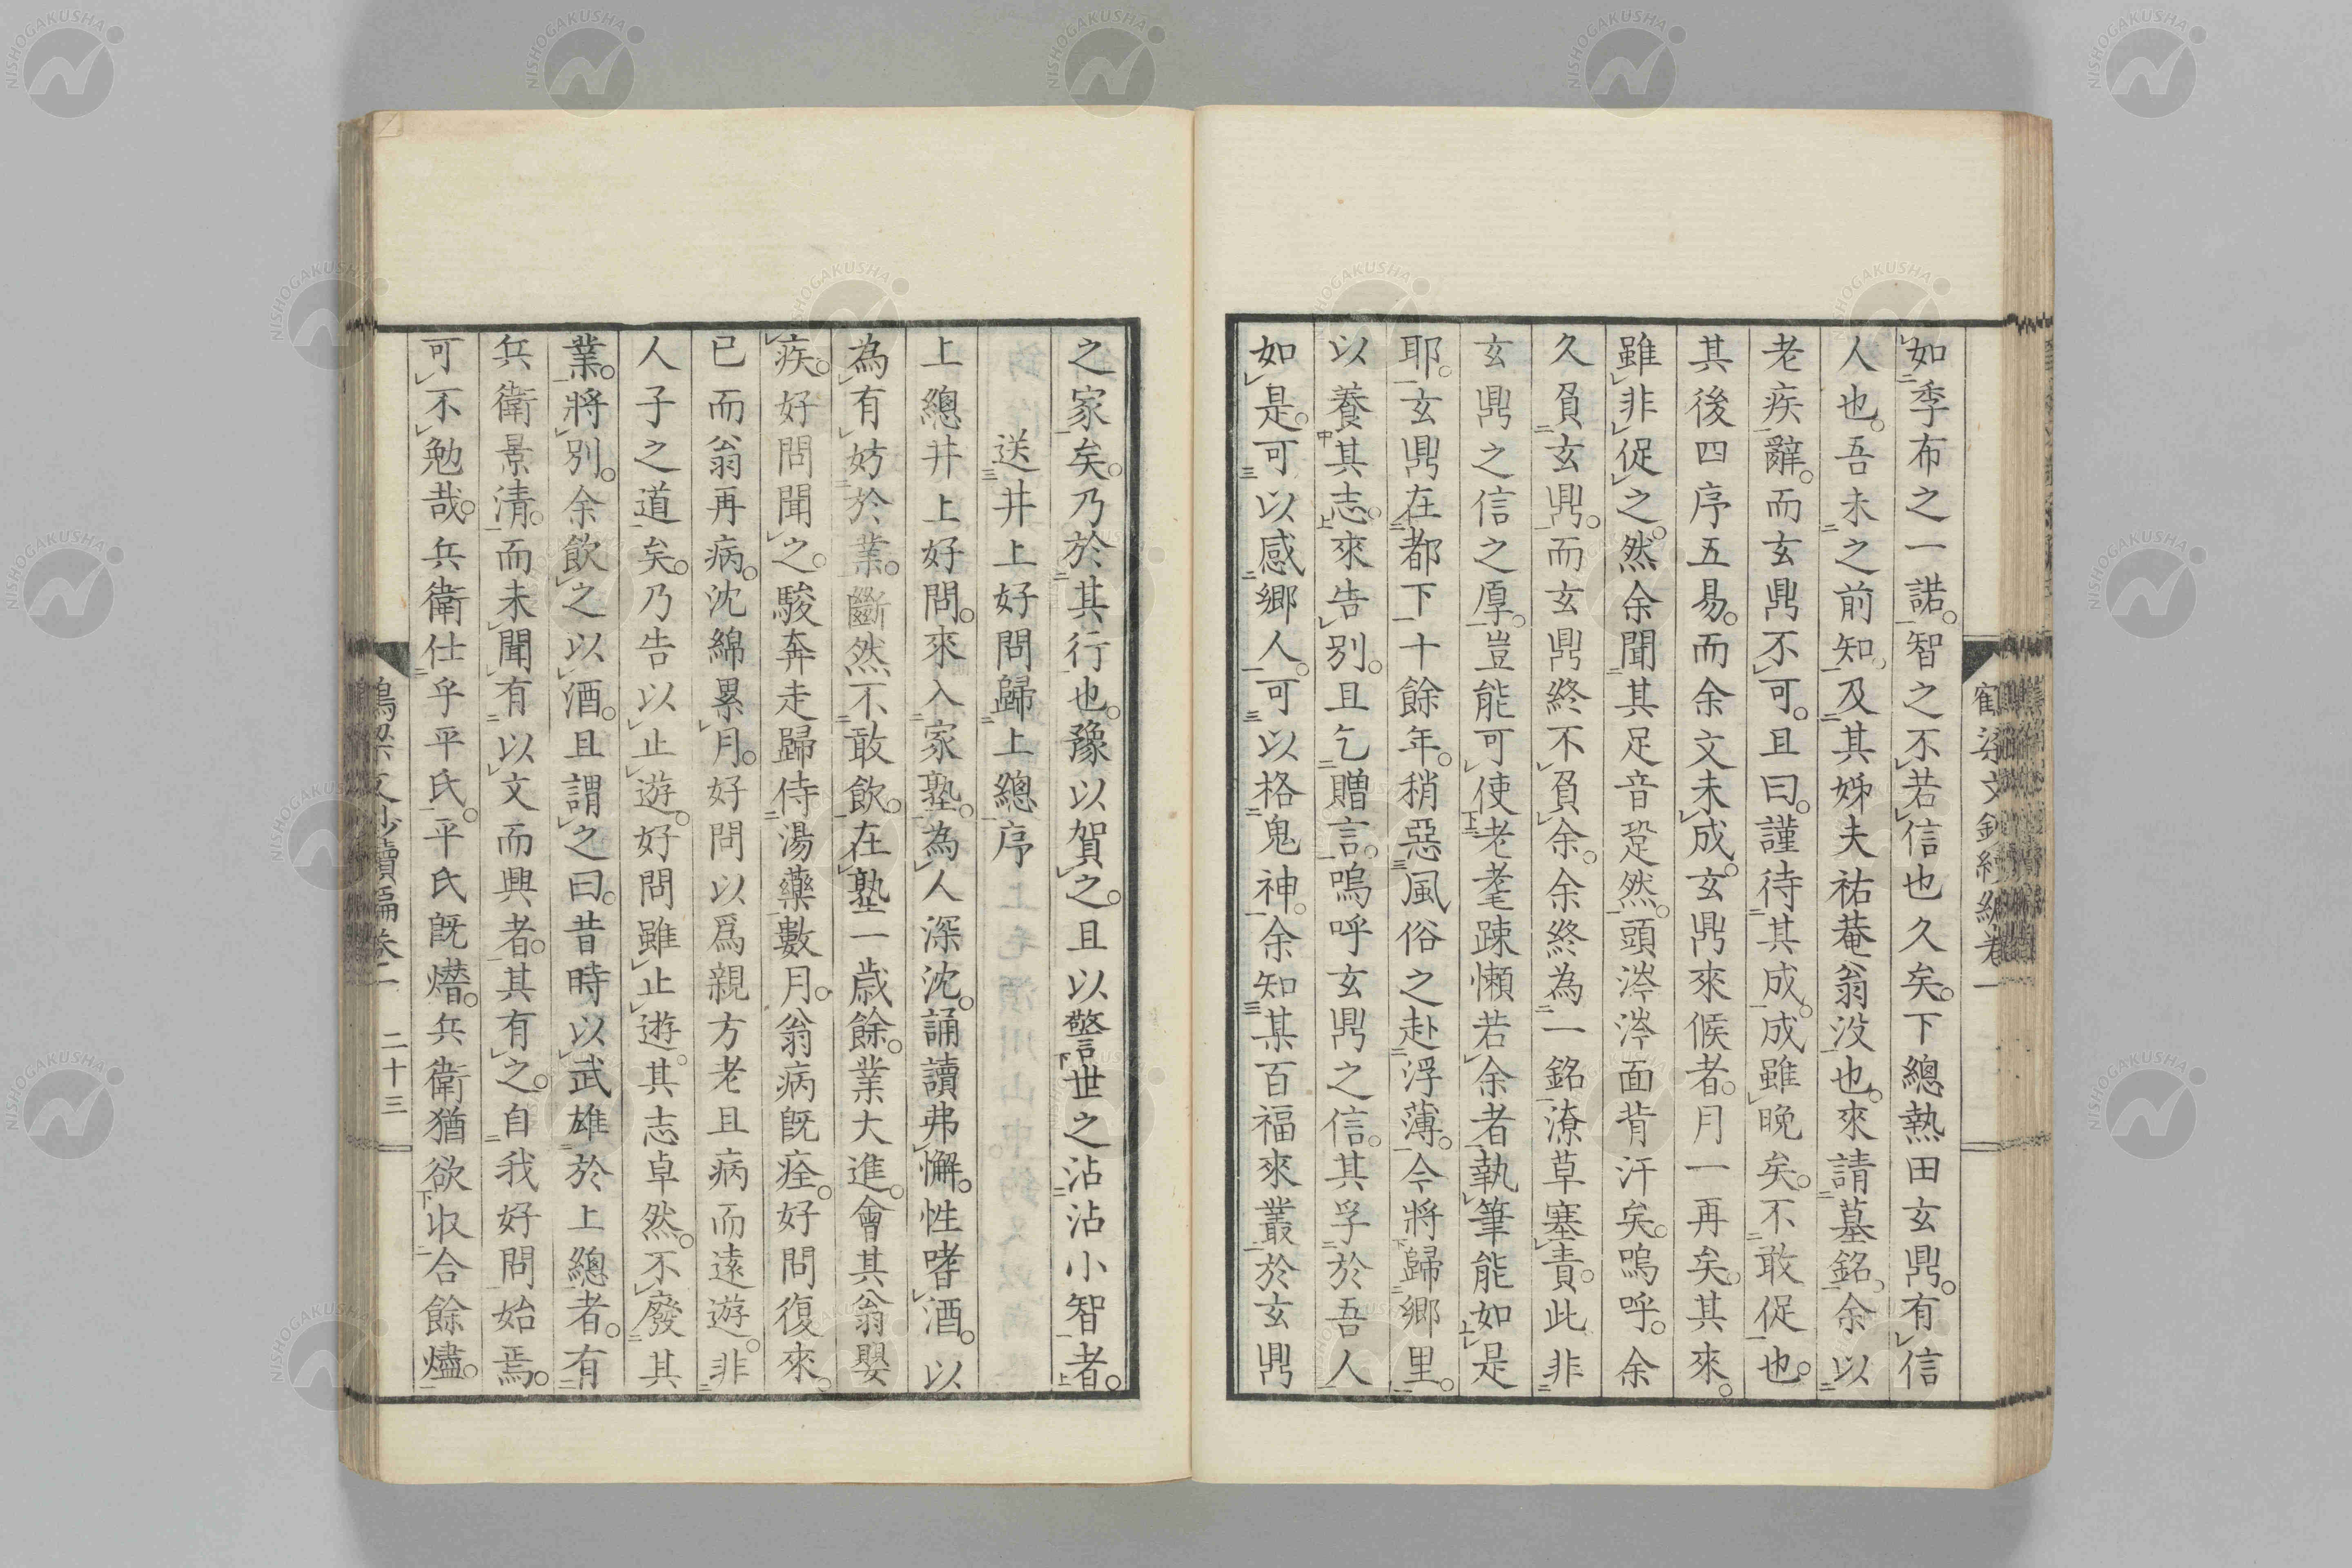 如季布之一諾。智之不若信也久矣。下總熱田玄鼎。有信
人也。吾未之前知。及其姊夫祐菴翁沒也。來請墓銘。余以
老疾辭。而玄鼎不可。且曰。謹待其成。成雖晚矣。不敢促也。
其後四序五易。而余文未成。玄鼎來候者。月一再矣。其來。
雖非促之。然余聞其足音跫然。頭涔涔面背汗矣。嗚呼。余
久負玄鼎。而玄鼎終不負余。余終為一銘。潦草塞責。此非
玄鼎之信之厚。豈能可使老耄疎懶若余者執筆能如是
耶。玄鼎在都下十餘年。稍惡風俗之赴浮薄。今將歸鄉里。
以養其志。來告別。且乞贈言。嗚呼玄鼎之信。其孚於吾人
如是。可以感鄉人。可以格鬼神。余知某百福來叢於玄鼎
之家矣。乃於其行也。豫以賀之。且以警世之沾沾小智者。
送井上好問歸上總序
上總井上好問。來入家塾。為人深沈。誦讀弗懈。性嗜酒。以
為有妨於業。斷然不敢飲。在塾一歲餘。業大進。會其翁嬰
疾。好問聞之。駿奔走歸侍湯藥數月。翁病既痊。好問復來。
已而翁再病。沈綿累月。好問以爲親方老且病而遠遊。非
人子之道矣。乃告以止遊。好問雖止遊。其志卓然。不廢其
業。將別。余飲之以酒。且謂之曰。昔時以武雄於上總者。有
兵衛景清。而未聞有以文而興者。其有之。自我好問始焉。
可不勉哉。兵衛仕乎平氏。平氏既熸。兵衛猶欲收合餘燼。
續編卷二 二十三
NISHOGAKUSHA